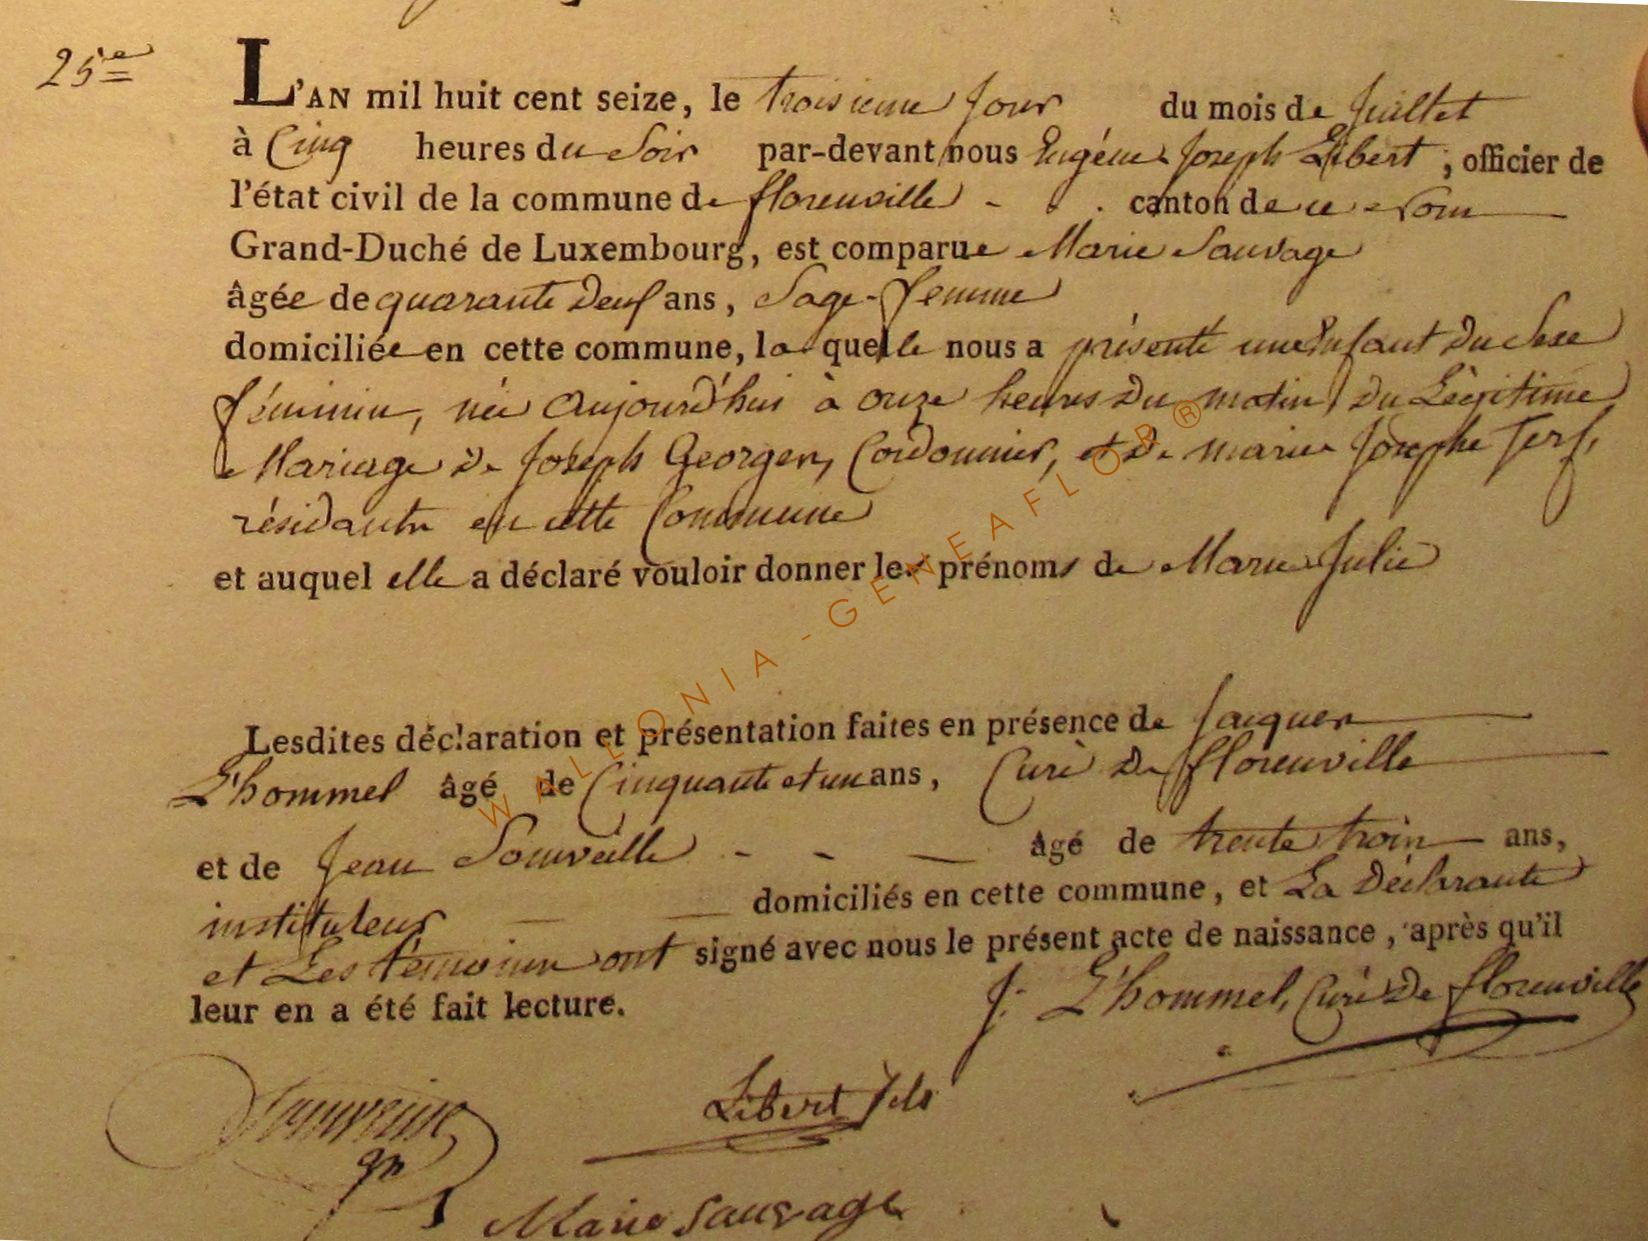 25e
L'AN mil huit cent seize, le troisieme Jour du mois de Juillet
à Cinq heures du Soir par-devant nous Eugéne Joseph Libert, officier de
l'état civil de la commune de florenville - . . canton de ce Nom
Grand-Duché de Luxembourg, est comparue Marie Sauvage
âgée de quarante neuf ans, Sage-femme
domiciliée en cette commune, la quelle nous a présenté une Enfant du Sexe
féminin, née aujourd'hui à onze heures du matin, du Légitime
Mariage de Joseph Georges, Cordonnier, et de marie Josephe Jerf,
résidants en cette Commune
et auquel elle a déclaré vouloir donner les prénoms de Marie Julie
Lesdites déclaration et présentation faites en présence de Jacques
L'hommel âgé de Cinquante et un ans, Curé de florenville
et de Jean - - — âgé de trente trois ans,
instituteur — — domiciliés en cette commune, et La Déclarante
et Les témoins ont signé avec nous le présent acte de naissance, après qu'il
leur en a été fait lecture.
J: L'hommel, Curé De florenville
Libert fils
Marie Sauvage
WALLONIA-GENEAFLOR®